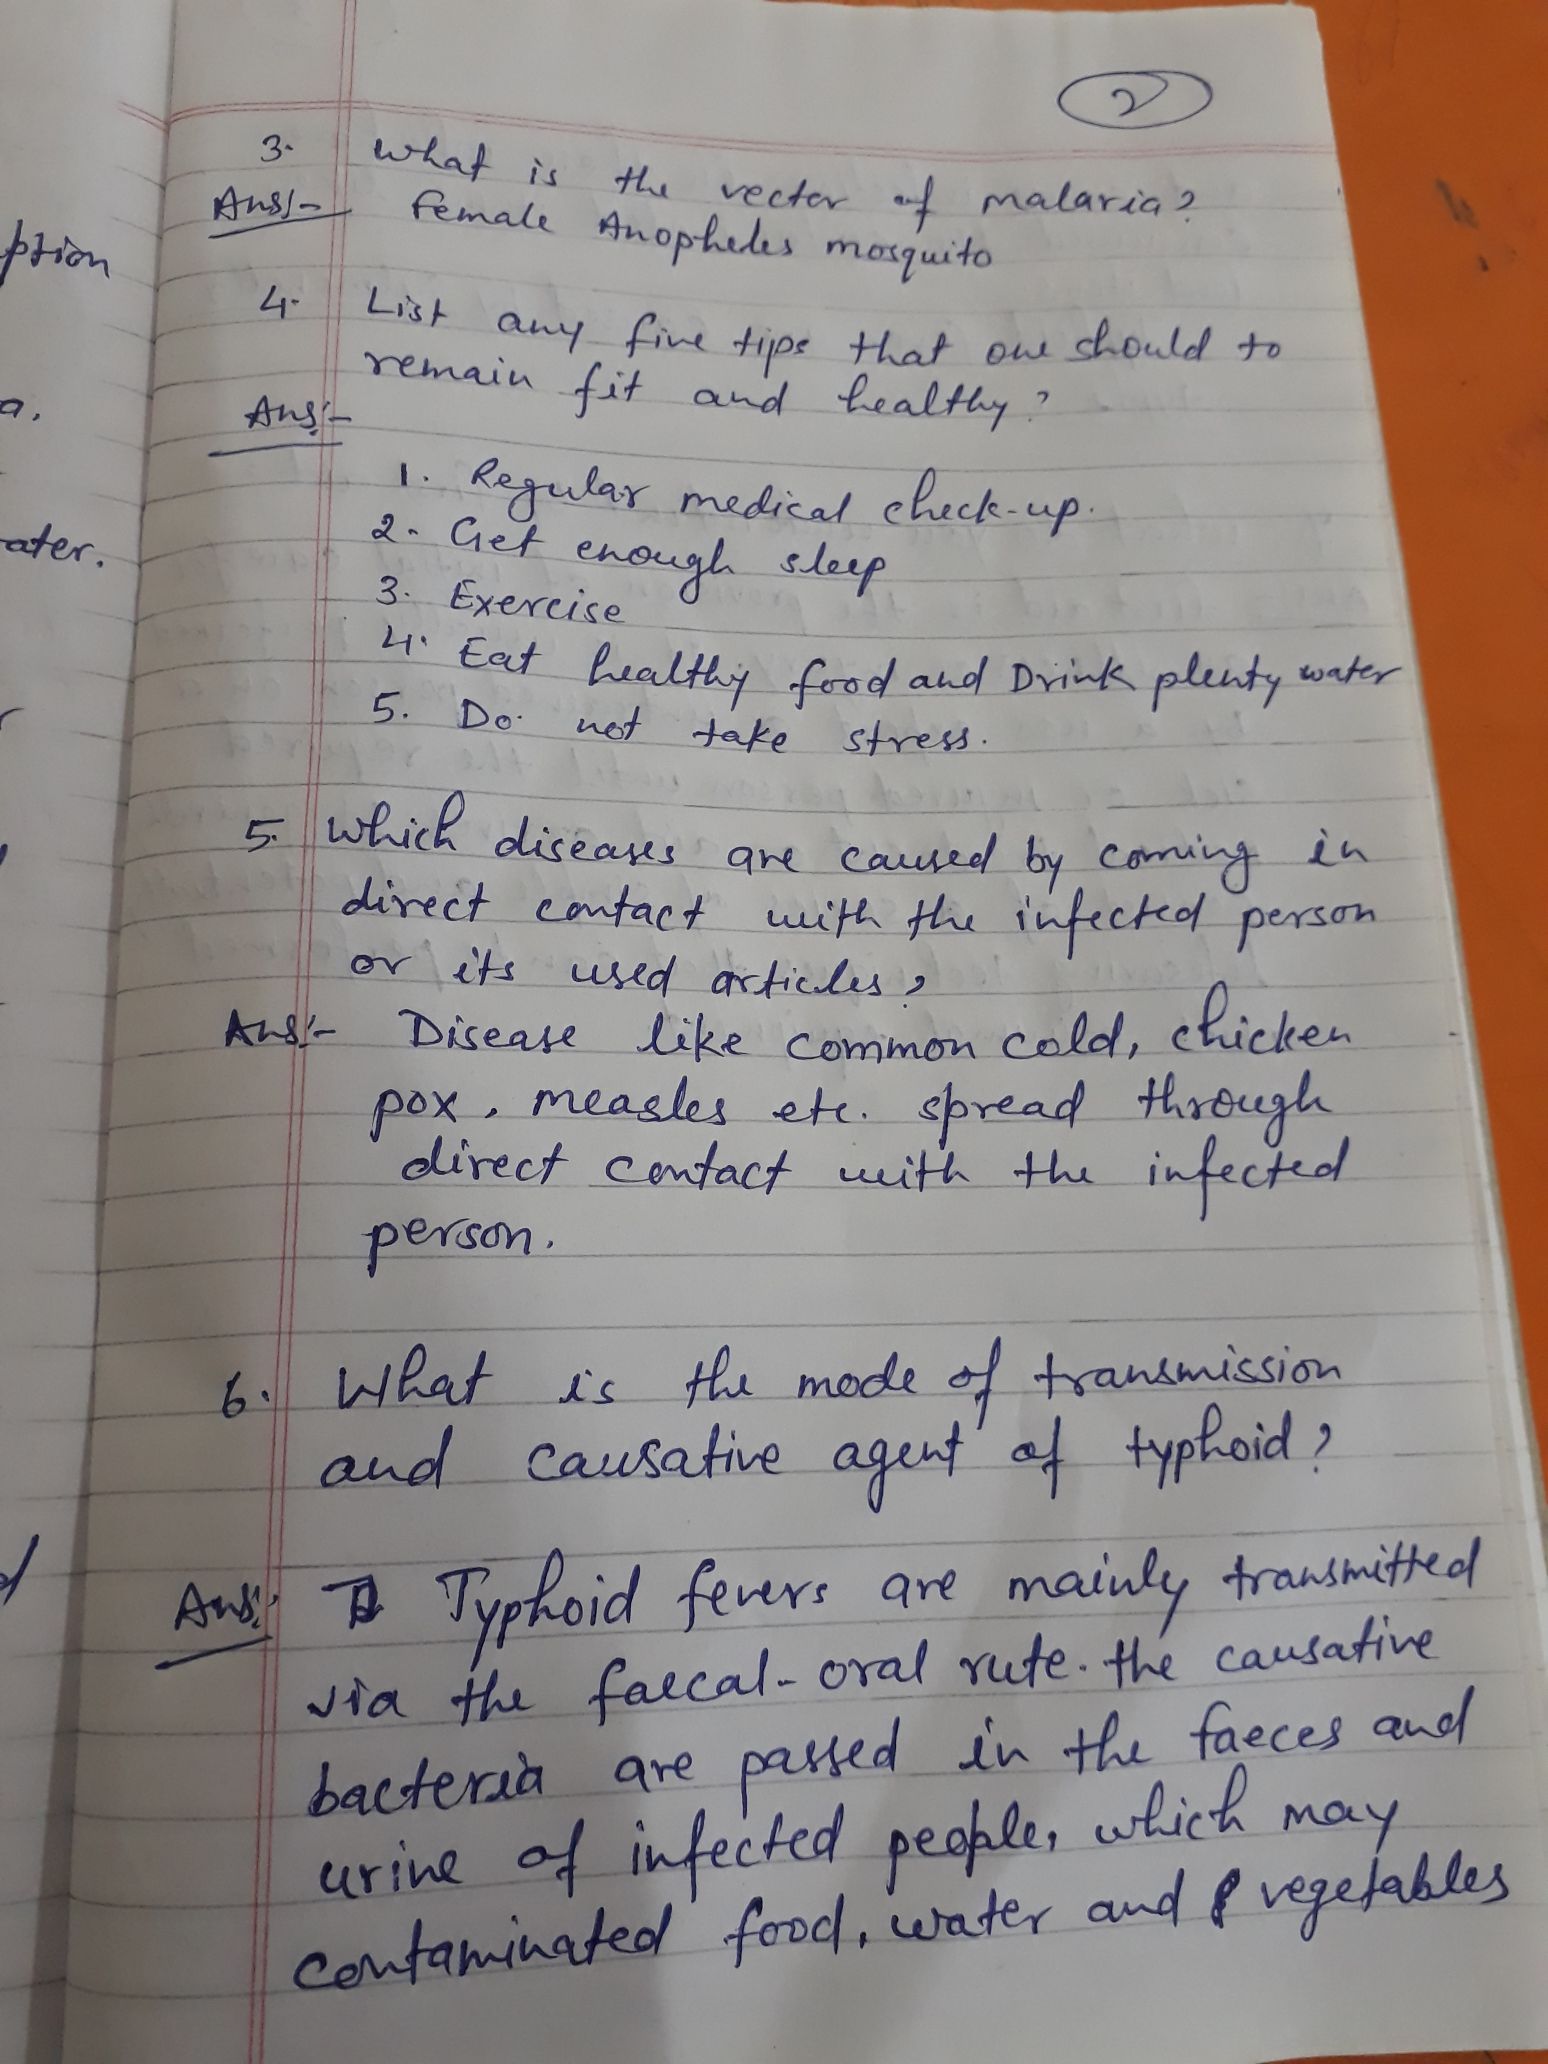 2
3. What is the vector of malaria?
Ans:- Female Anopheles mosquito
4. List any five tips that one should to
remain fit and healthy?
Ans:-
1. Regular medical check-up.
2. Get enough sleep
3. Exercise
4. Eat healthy food and Drink plenty water
5. Do not take stress.
5. Which diseases are caused by coming in
direct contact with the infected person
or its used articles?
Ans:- Disease like common cold, chicken
pox, measles etc. spread through
direct contact with the infected
person.
6. What is the mode of transmission
and causative agent of typhoid?
Ans:- Typhoid fevers are mainly transmitted
via the faecal-oral rute. the causative
bacteria are passed in the faeces and
urine of infected people, which may
contaminated food, water and vegetables
ption
a.
ater.